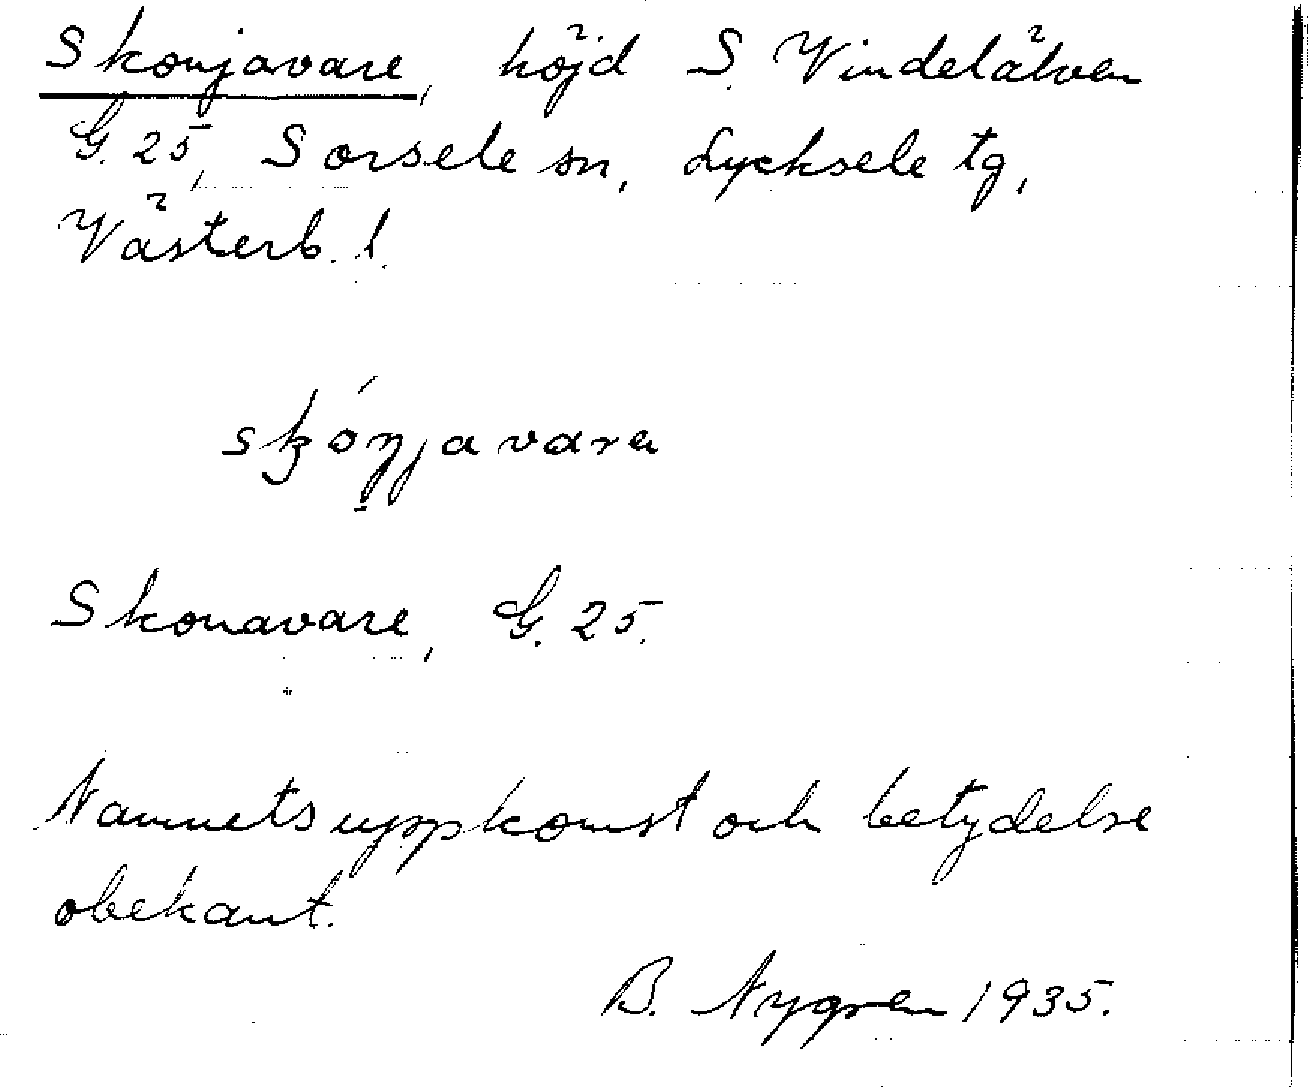 Skonjavare, höjd S. Vindelälven
G. 25, Sorsele sn, Lycksele tg,
Västerb. l.
Skonavare, G. 25.
Namnets uppkomst och betydelse
obekant.
B. Nygren 1935.